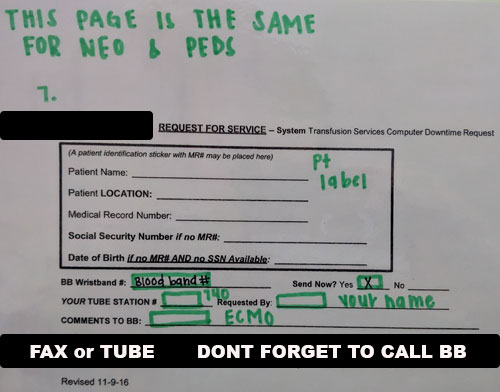 THIS PAGE IS THE SAME
FOR NEO & PEDS
7.
REQUEST FOR SERVICE – System Transfusion Services Computer Downtime Request
(A patient identification sticker with MR# may be placed here)
Pt
label
Patient Name:
Patient LOCATION:
Medical Record Number:
Social Security Number if no MR#:
Date of Birth if no MR# AND no SSN Available:
BB Wristband #: Blood band # Send Now? Yes X No
YOUR TUBE STATION # 740 Requested By: your name
COMMENTS TO BB: ECMO
FAX or TUBE DONT FORGET TO CALL BB
Revised 11-9-16